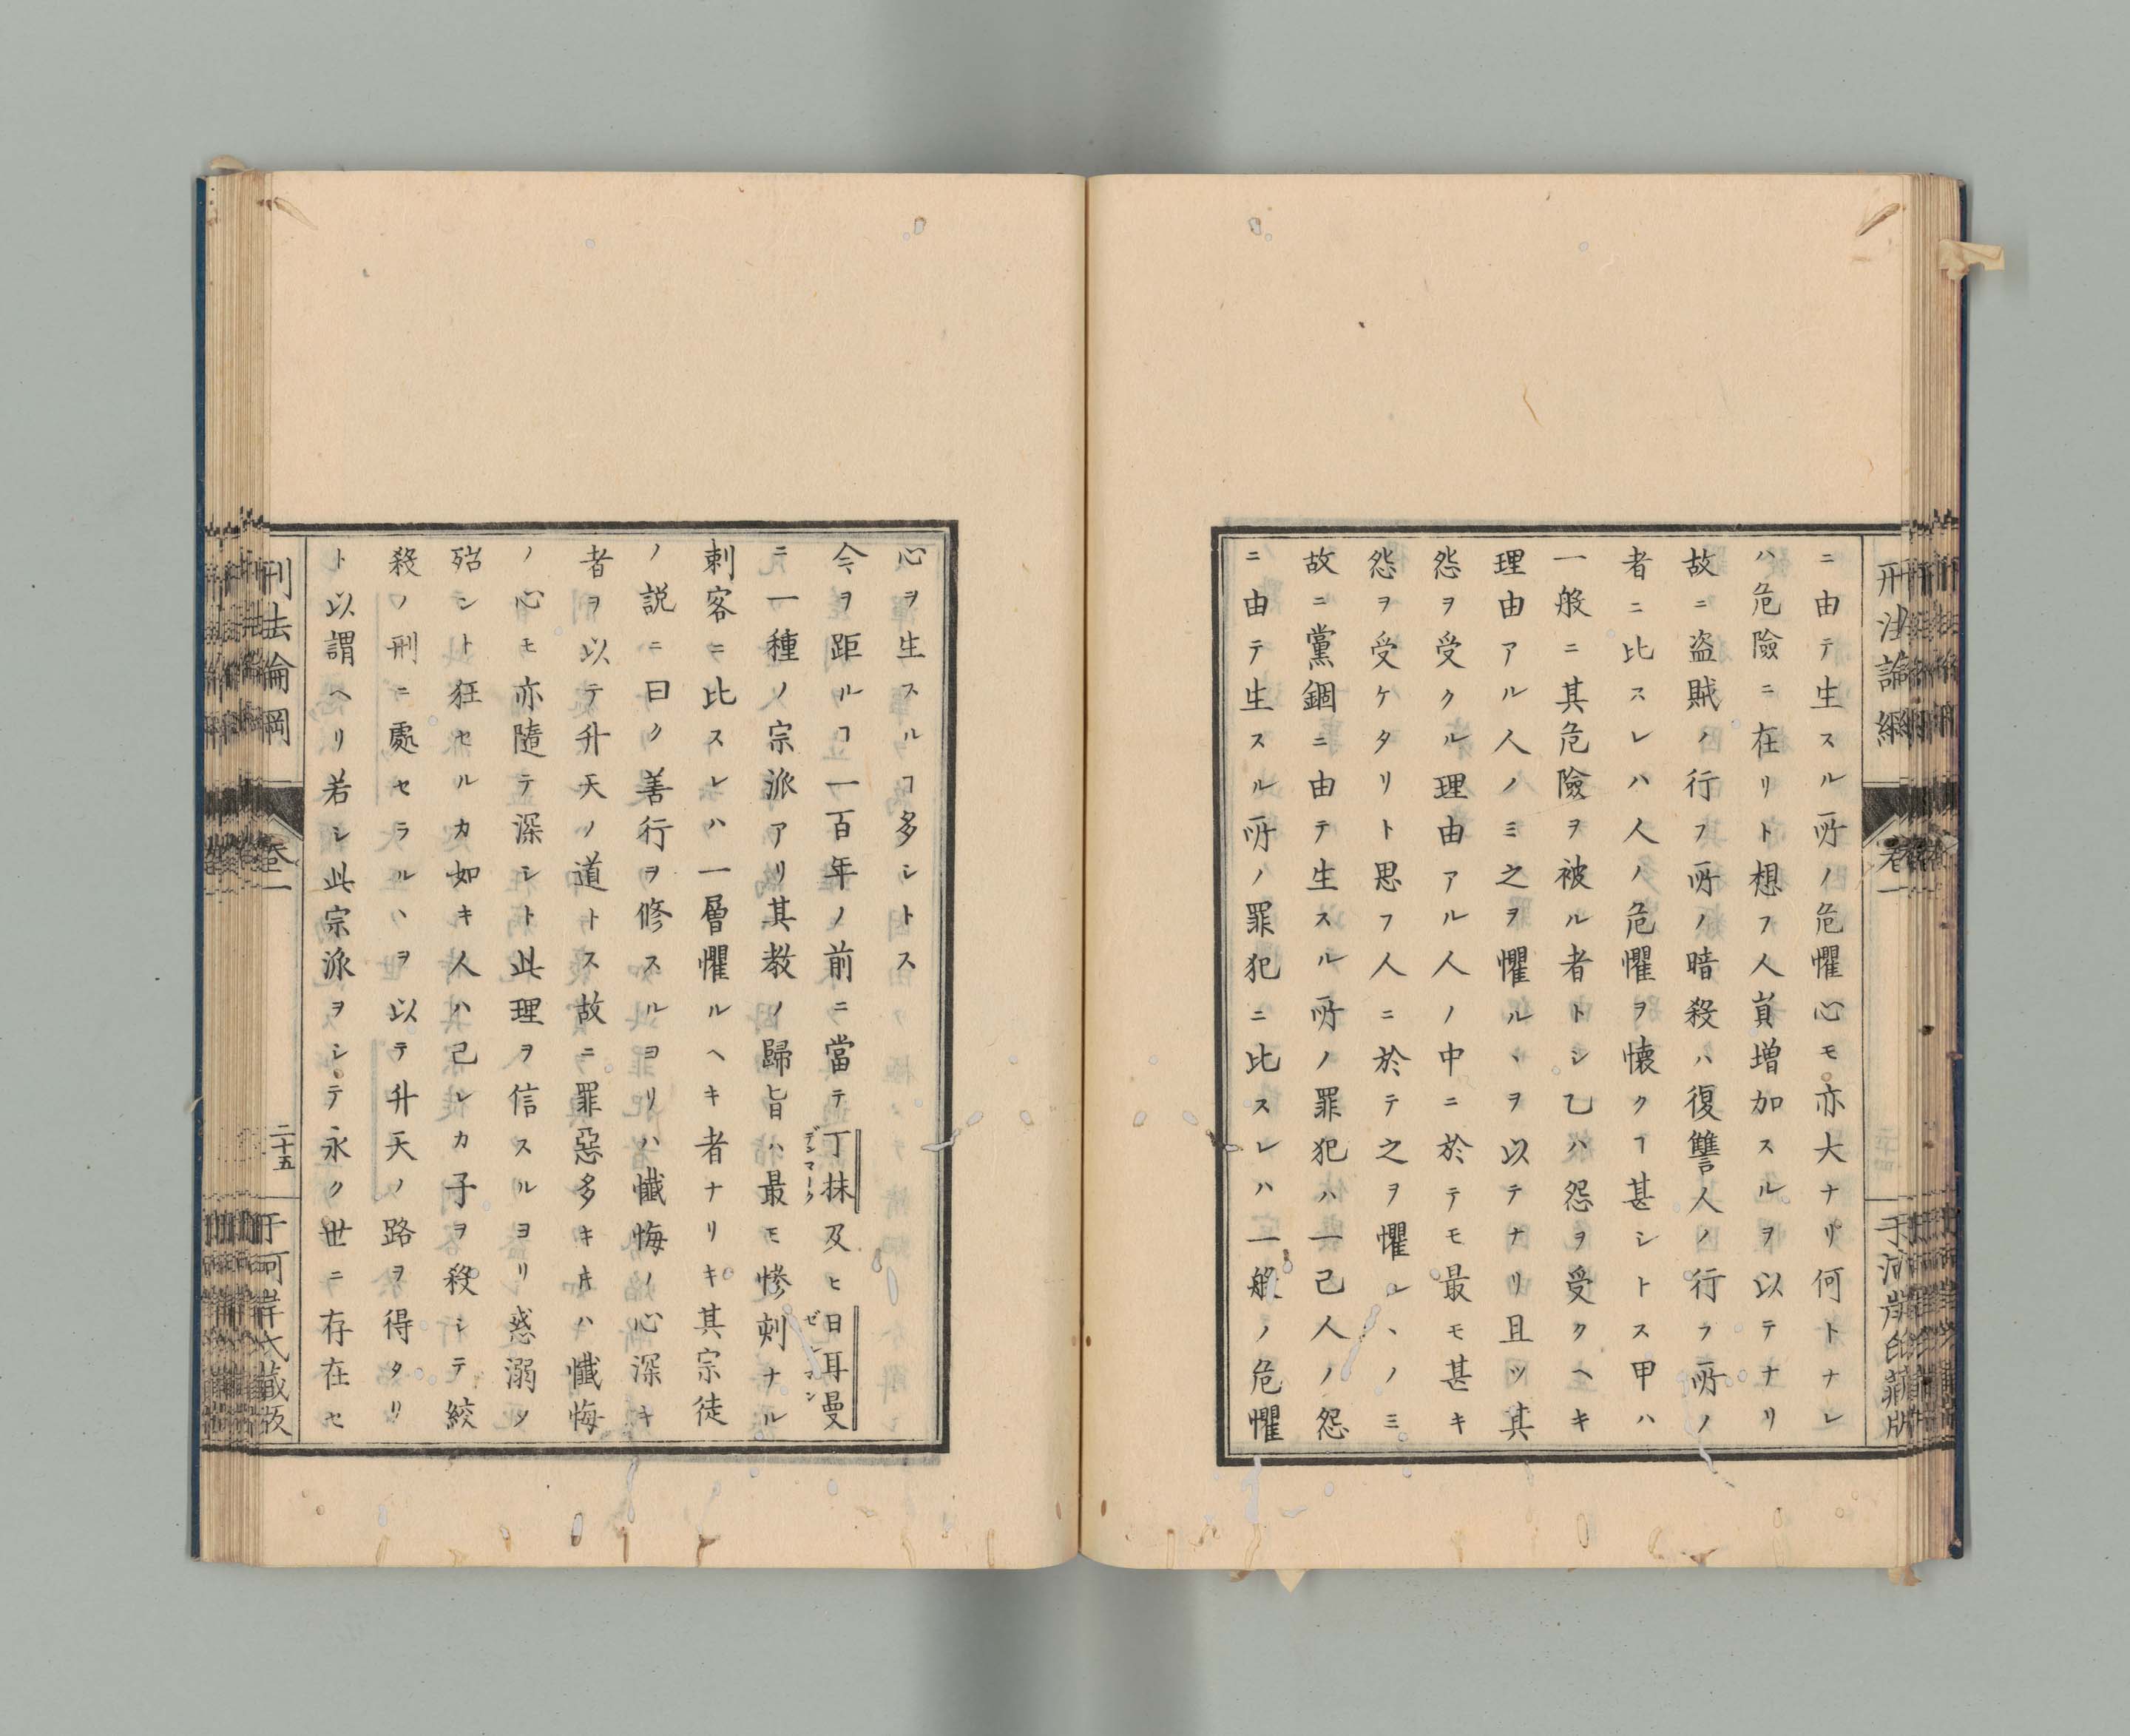 刑法論綱
卷一
ニ由テ生スル所ノ危懼心モ亦大ナリ何トナレ
ハ危險ニ在リト想フ人員増加スルヲ以テナリ
故ニ盗賊ノ行フ所ノ暗殺ハ復讐人ノ行フ所ノ
者ニ比スレハ人ノ危懼ヲ懐クヿ甚シトス甲ハ
一般ニ其危險ヲ被ル者トシ乙ハ怨ヲ受クヘキ
理由アル人ノミ之ヲ懼ルヽヲ以テナリ且ツ其
怨ヲ受クル理由アル人ノ中ニ於テモ最モ甚キ
怨ヲ受ケタリト思フ人ニ於テ之ヲ懼レヽノミ
故ニ黨錮ニ由テ生スル所ノ罪犯ハ一己人ノ怨
ニ由テ生スル所ノ罪犯ニ比スレハ一般ノ危懼
心ヲ生スルヿ多シトス
今ヲ距ルヿ一百年ノ前ニ當テ丁抹及ヒ日耳曼
デンマーク
ゼルマン
ニ一種ノ宗派アリ其教ノ歸旨ハ最モ慘刻ナル
刺客ニ比スレハ一層懼ルヘキ者ナリキ其宗徒
ノ説ニ曰ク善行ヲ修スルヨリハ懺悔ノ心深キ
者ヲ以テ升天ノ道トス故ニ罪惡多キキハ懺悔
ノ心モ亦隨テ深シト此理ヲ信スルヨリ惑溺ノ
殆ント狂セルカ如キ人ハ己レカ子ヲ殺シテ絞
殺ノ刑ニ處セラルヽヲ以テ升天ノ路ヲ得タリ
ト以謂ヘリ若シ此宗派ヲシテ永ク世ニ存在セ
刑法論綱
卷一
二十五
于河岸氏藏版